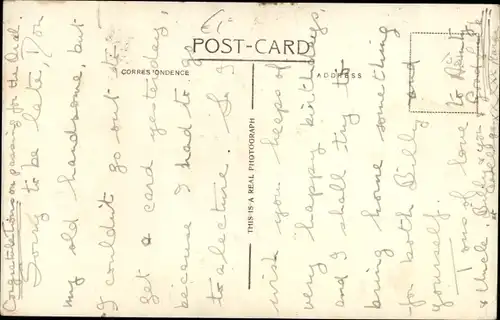 POST-CARD
CORRESPONDENCE
ADDRESS
THIS IS A REAL PHOTOGRAPH
Congratulations on passing for the Acad.
Sorry to be late, Don
my old handsome, but
I couldn't go out to
get a card yesterday,
because I had to go
to a lecture. So I
wish you heaps of
very happy birthdays,
and I shall try to
bring home something
for both Billy and
yourself.
Tons of love to
& Uncle Billy & you